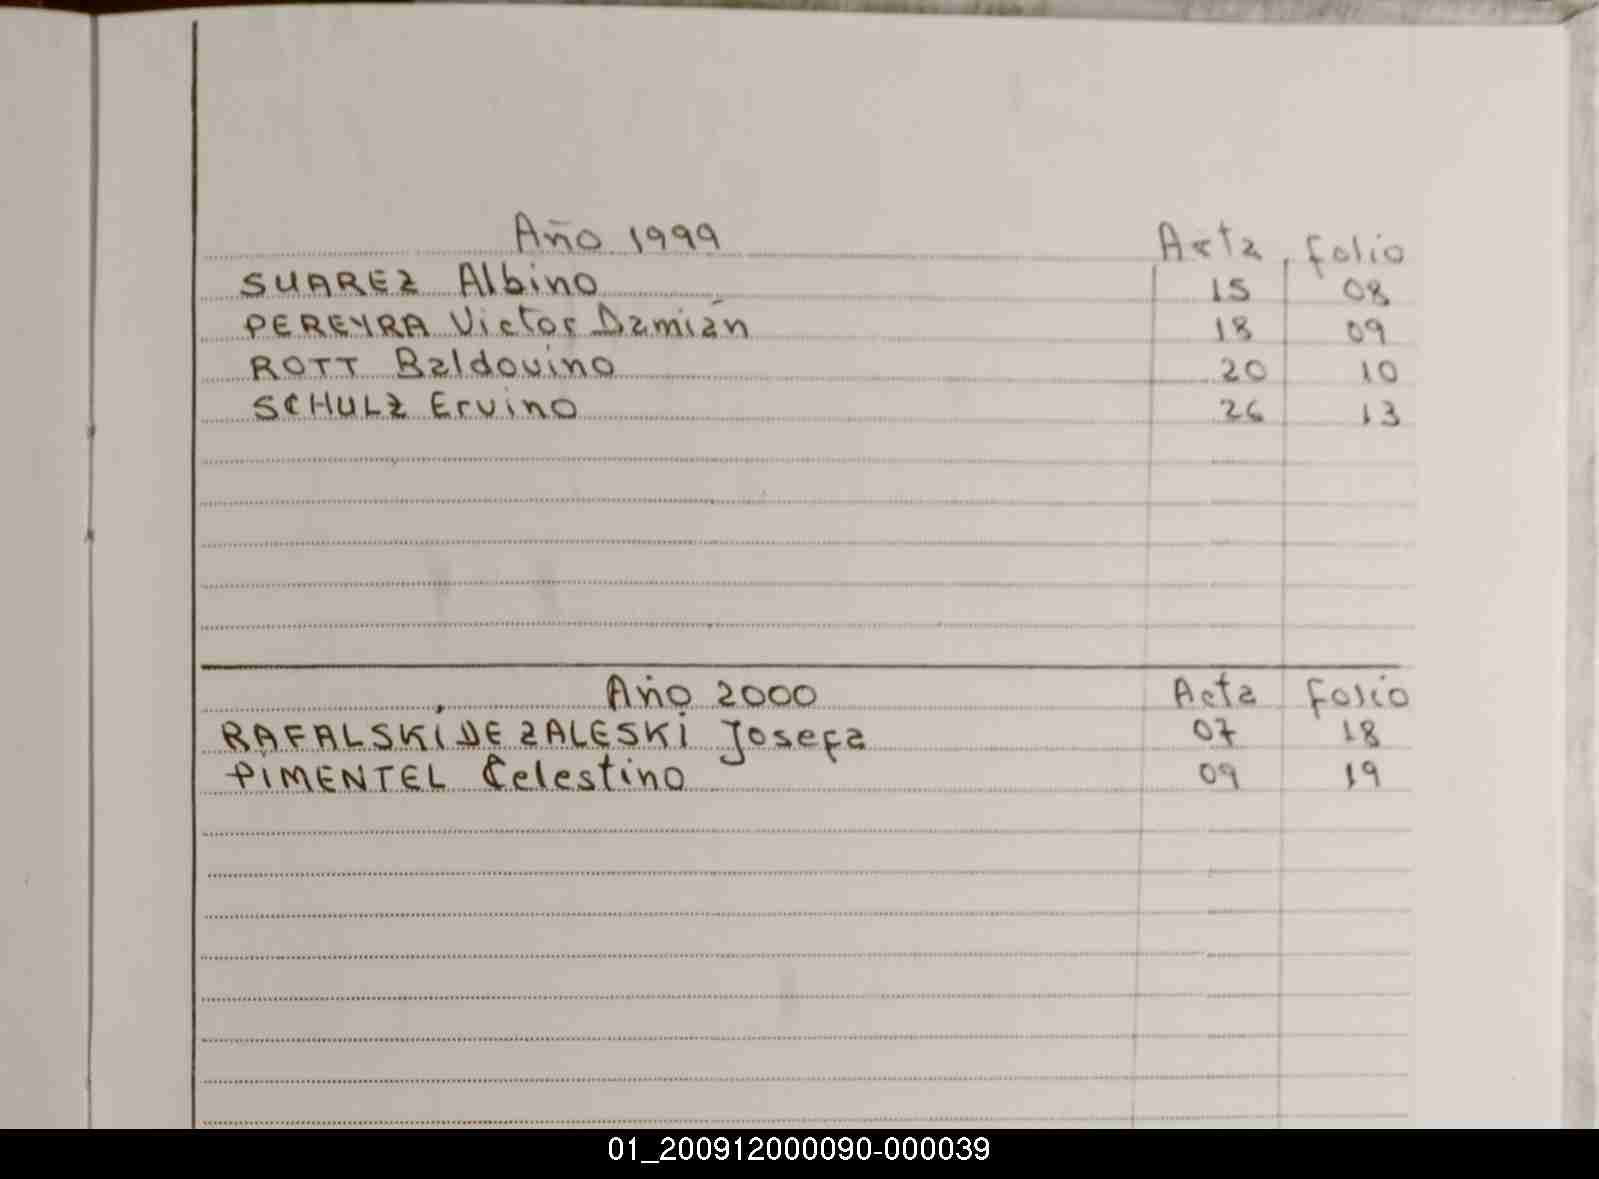 Año 1999 Acta folio
SUAREZ Albino 15 08
PEREYRA Victor Damián 18 09
ROTT Baldovino 20 10
SCHULZ Ervino 26 13
Año 2000 Acta folio
RAFALSKI DE ZALESKI Josefa 07 18
PIMENTEL Celestino 09 19
01_200912000090-000039